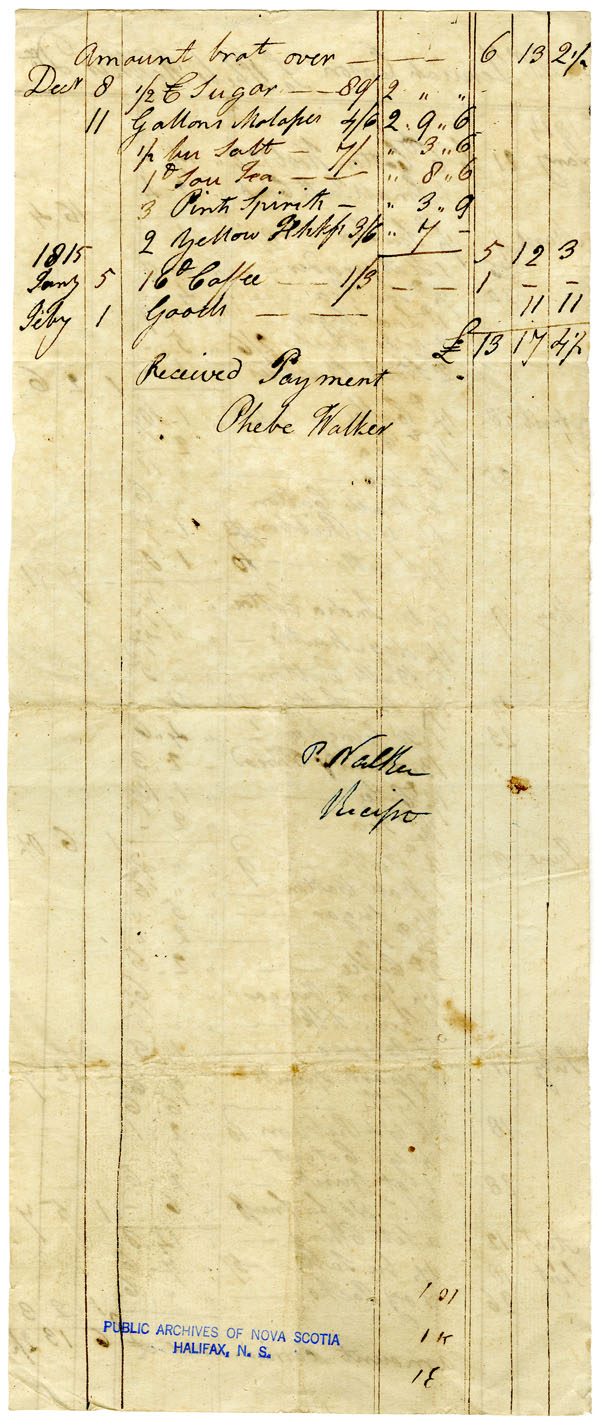 Amount brot over — — — 6 13 2½
Decr 8 ½ C Sugar — — 80/ 2 " "
11 Gallons Molasses 4/6 2 " 9 " 6
½ bu Salt — 7/ " 3 " 6
1 lb Sou Tea — — " 8 " 6
3 Pints Spirits — " 3 " 9
2 Yellow Hhkfs 3/6 " 7 —
5 12 3
1815
Jany 5 16 lb Coffee — — 1/3 — — 1 — —
Feby 1 Goods — — 11 11
£ 13 17 4½
Received Payment
Phebe Walker
P. Walker
Recipt
PUBLIC ARCHIVES OF NOVA SCOTIA
HALIFAX, N. S.